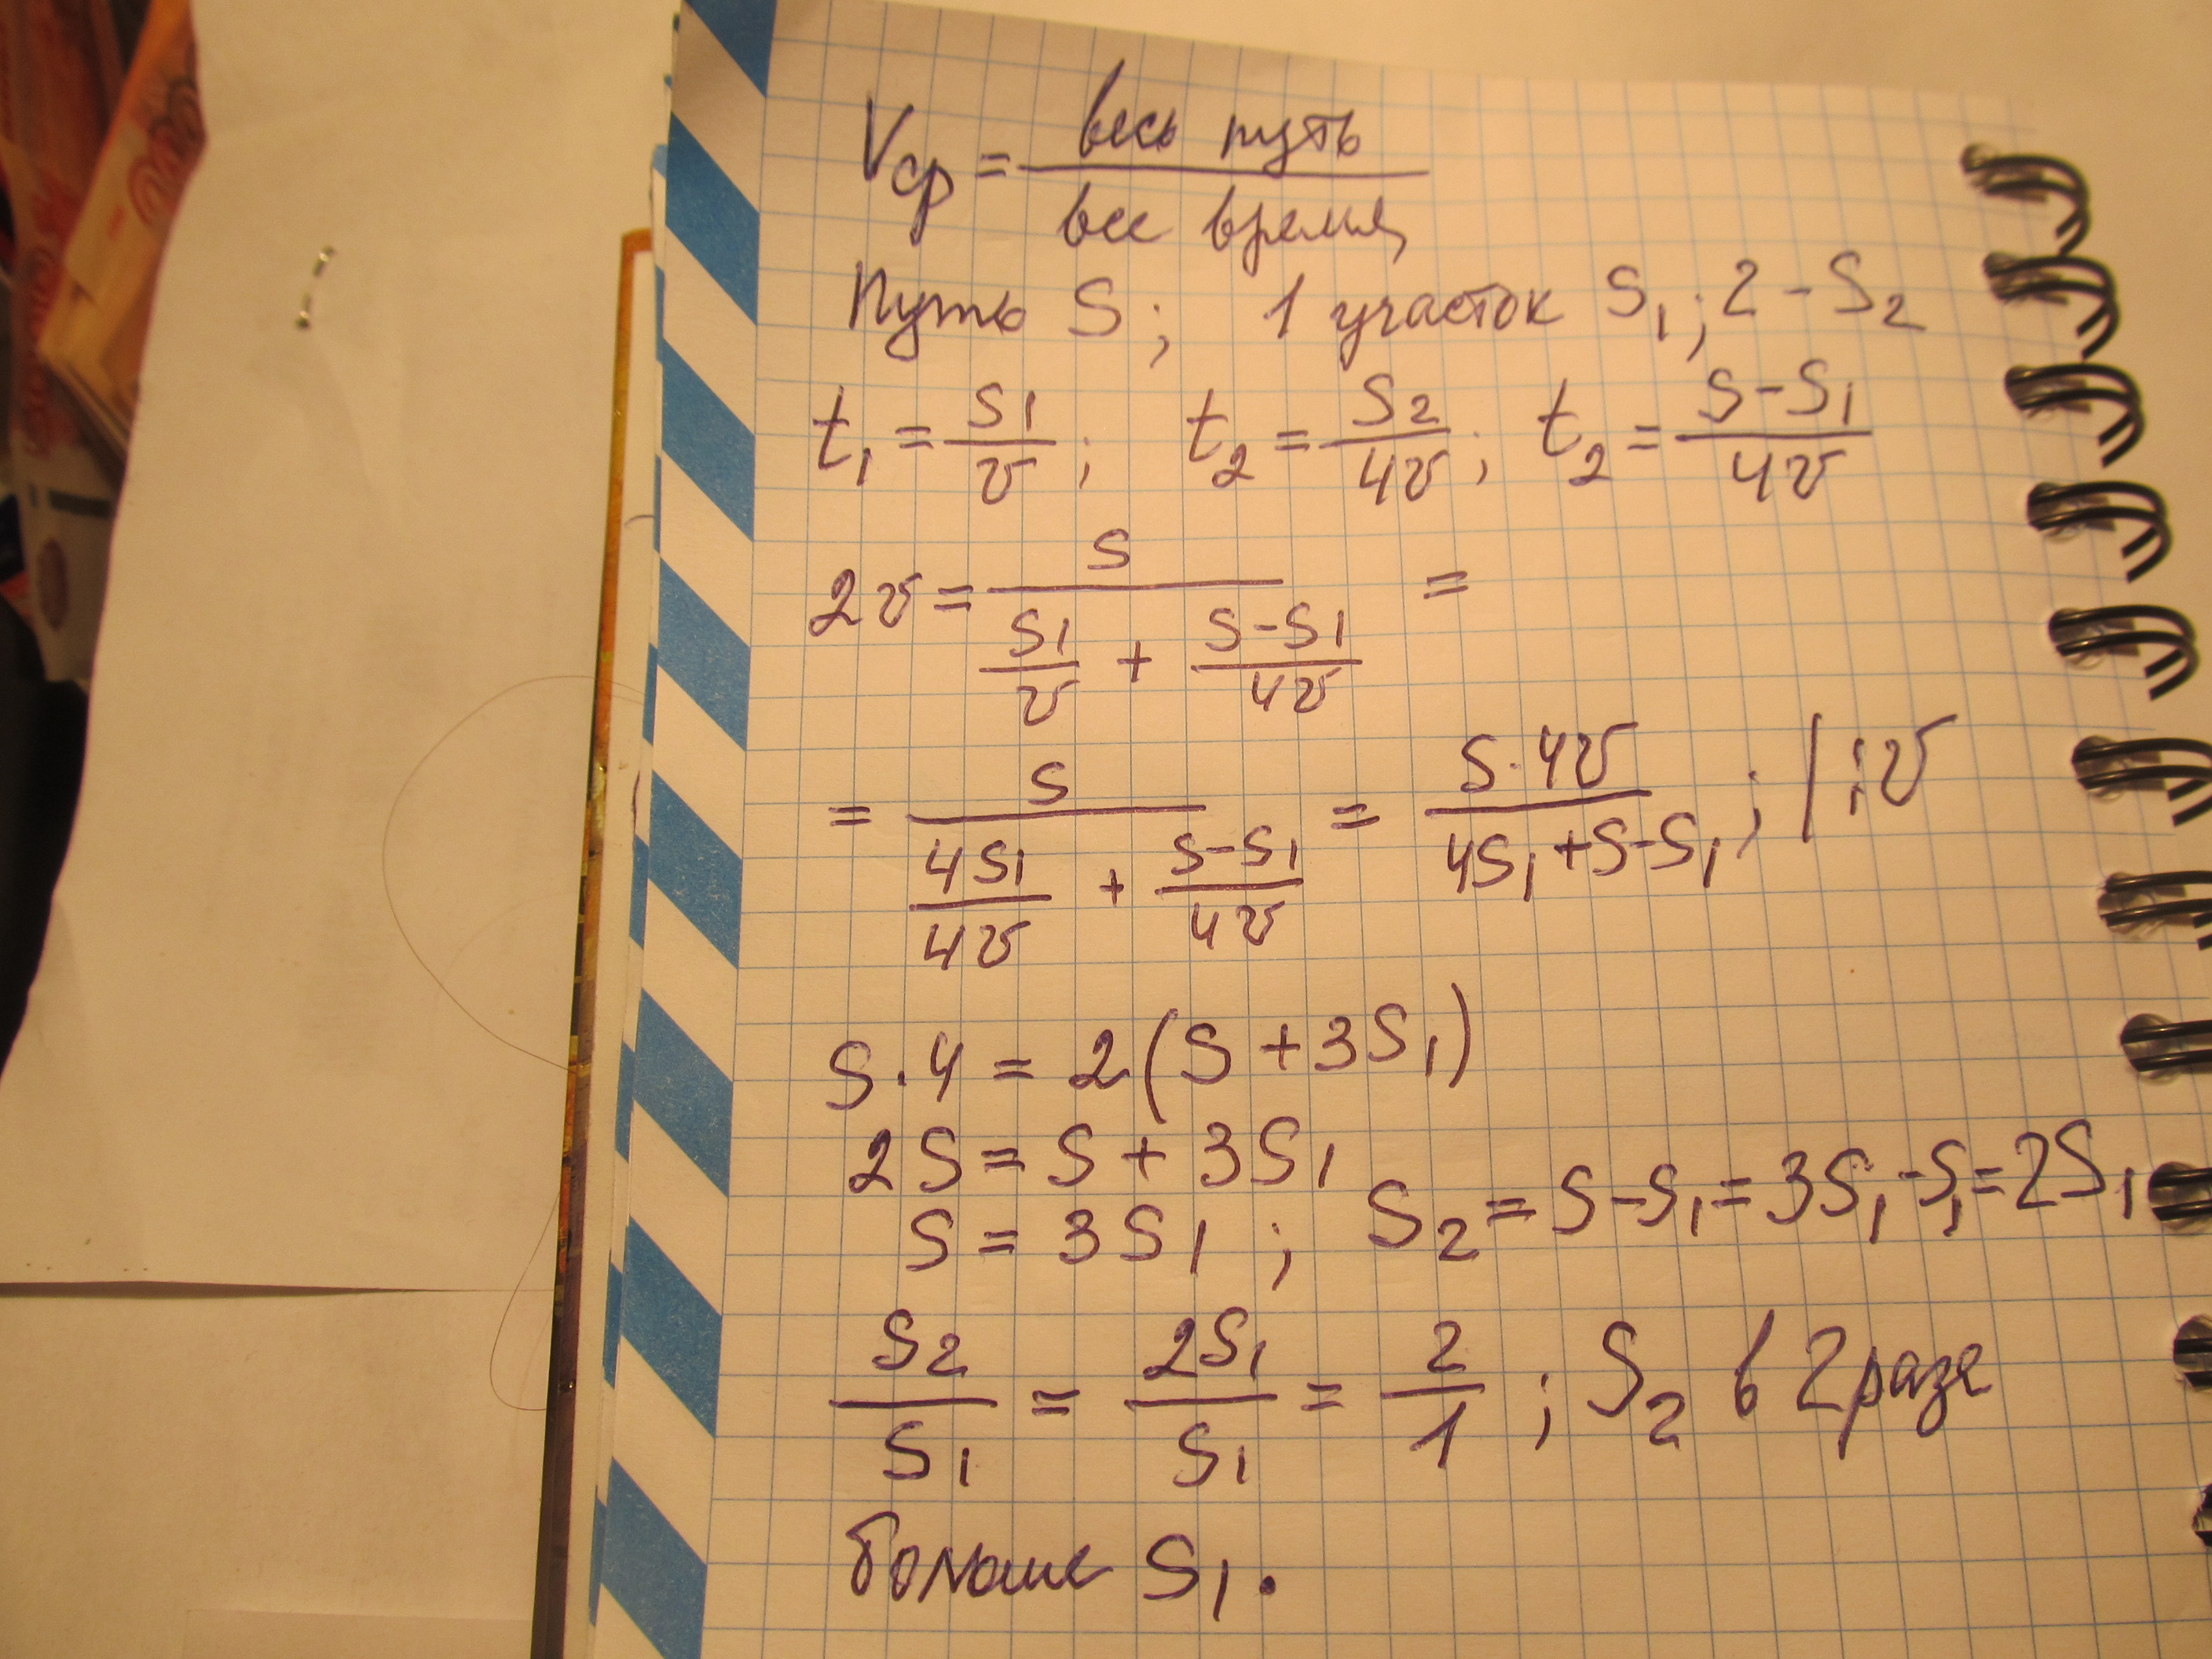 Vср = весь путь / все время
Путь S; 1 участок S₁; 2 – S₂
t₁ = S₁/v; t₂ = S₂/4v; t₂ = (S – S₁)/4v
2v = S / (S₁/v + (S – S₁)/4v) =
= S / (4S₁/4v + (S – S₁)/4v) = S·4v / (4S₁ + S – S₁); | :v
S·4 = 2(S + 3S₁)
2S = S + 3S₁
S = 3S₁; S₂ = S – S₁ = 3S₁ – S₁ = 2S₁
S₂/S₁ = 2S₁/S₁ = 2/1; S₂ в 2 раза
больше S₁.